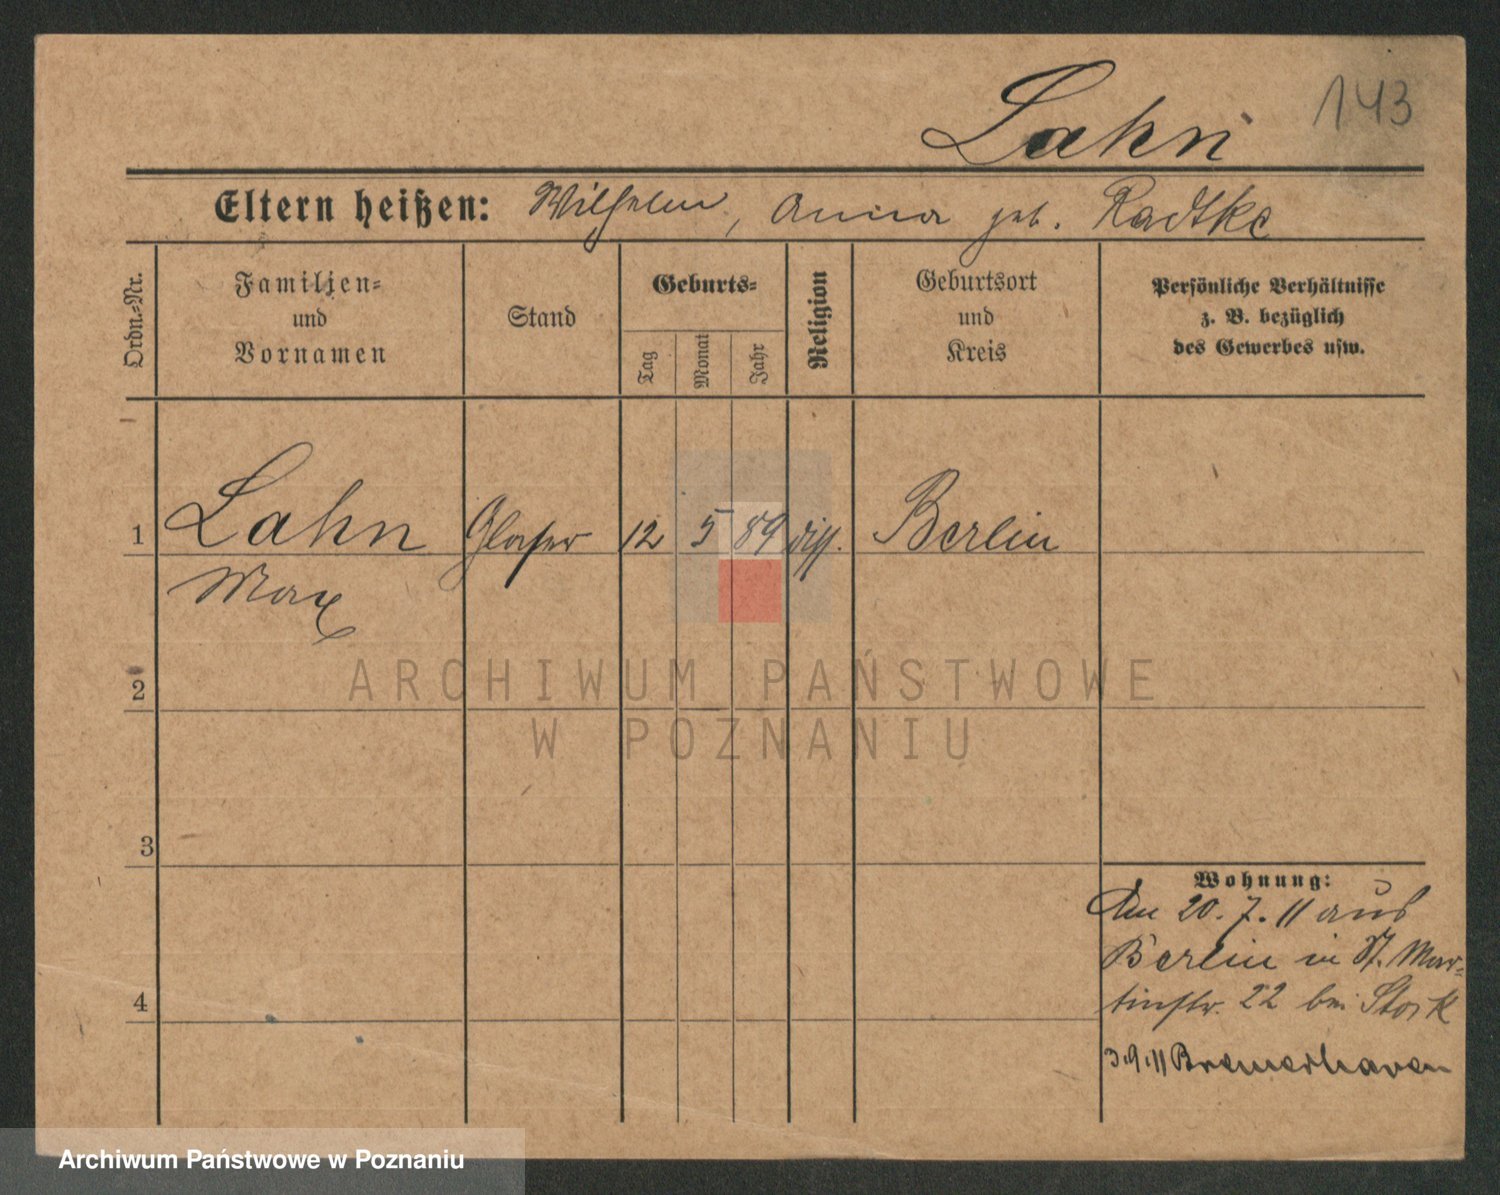 Lahn
143
Eltern heißen: Wilhelm, Anna geb. Radtke
Ordn.-Nr.
Familien-
und
Vornamen
Stand
Geburts-
Tag
Monat
Jahr
Religion
Geburtsort
und
Kreis
Persönliche Verhältnisse
z. B. bezüglich
des Gewerbes usw.
1 Lahn Glaser 12 5 89 diss. Berlin
Max
2
3
4
Wohnung:
Am 20. 7. 11 aus
Berlin in St. Mar-
tinstr. 22 bei Stork
3.9.11 Bremerhaven
ARCHIWUM PAŃSTWOWE
W POZNANIU
Archiwum Państwowe w Poznaniu